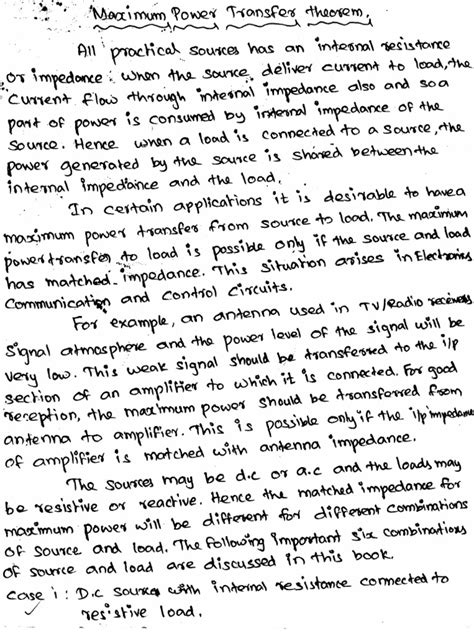 Maximum Power Transfer theorem.
All practical sources has an internal resistance
or impedance. when the source deliver current to load, the
current flow through internal impedance also and so a
part of power is consumed by internal impedance of the
source. Hence when a load is connected to a source, the
power generated by the source is shared between the
internal impedance and the load.
In certain applications it is desirable to have a
maximum power transfer from source to load. The maximum
power transfer to load is possible only if the source and load
has matched impedance. This situation arises in Electronics
Communication and control circuits.
For example, an antenna used in TV/Radio receives
signal atmosphere and the power level of the signal will be
very low. This weak signal should be transferred to the i/p
section of an amplifier to which it is connected. For good
reception, the maximum power should be transferred from
antenna to amplifier. This is possible only if the i/p impedance
of amplifier is matched with antenna impedance.
The sources may be d.c or a.c and the loads may
be resistive or reactive. Hence the matched impedance for
maximum power will be different for different combinations
of source and load. The following important six combinations
of source and load are discussed in this book.
Case i : D.c source with internal resistance connected to
resistive load.